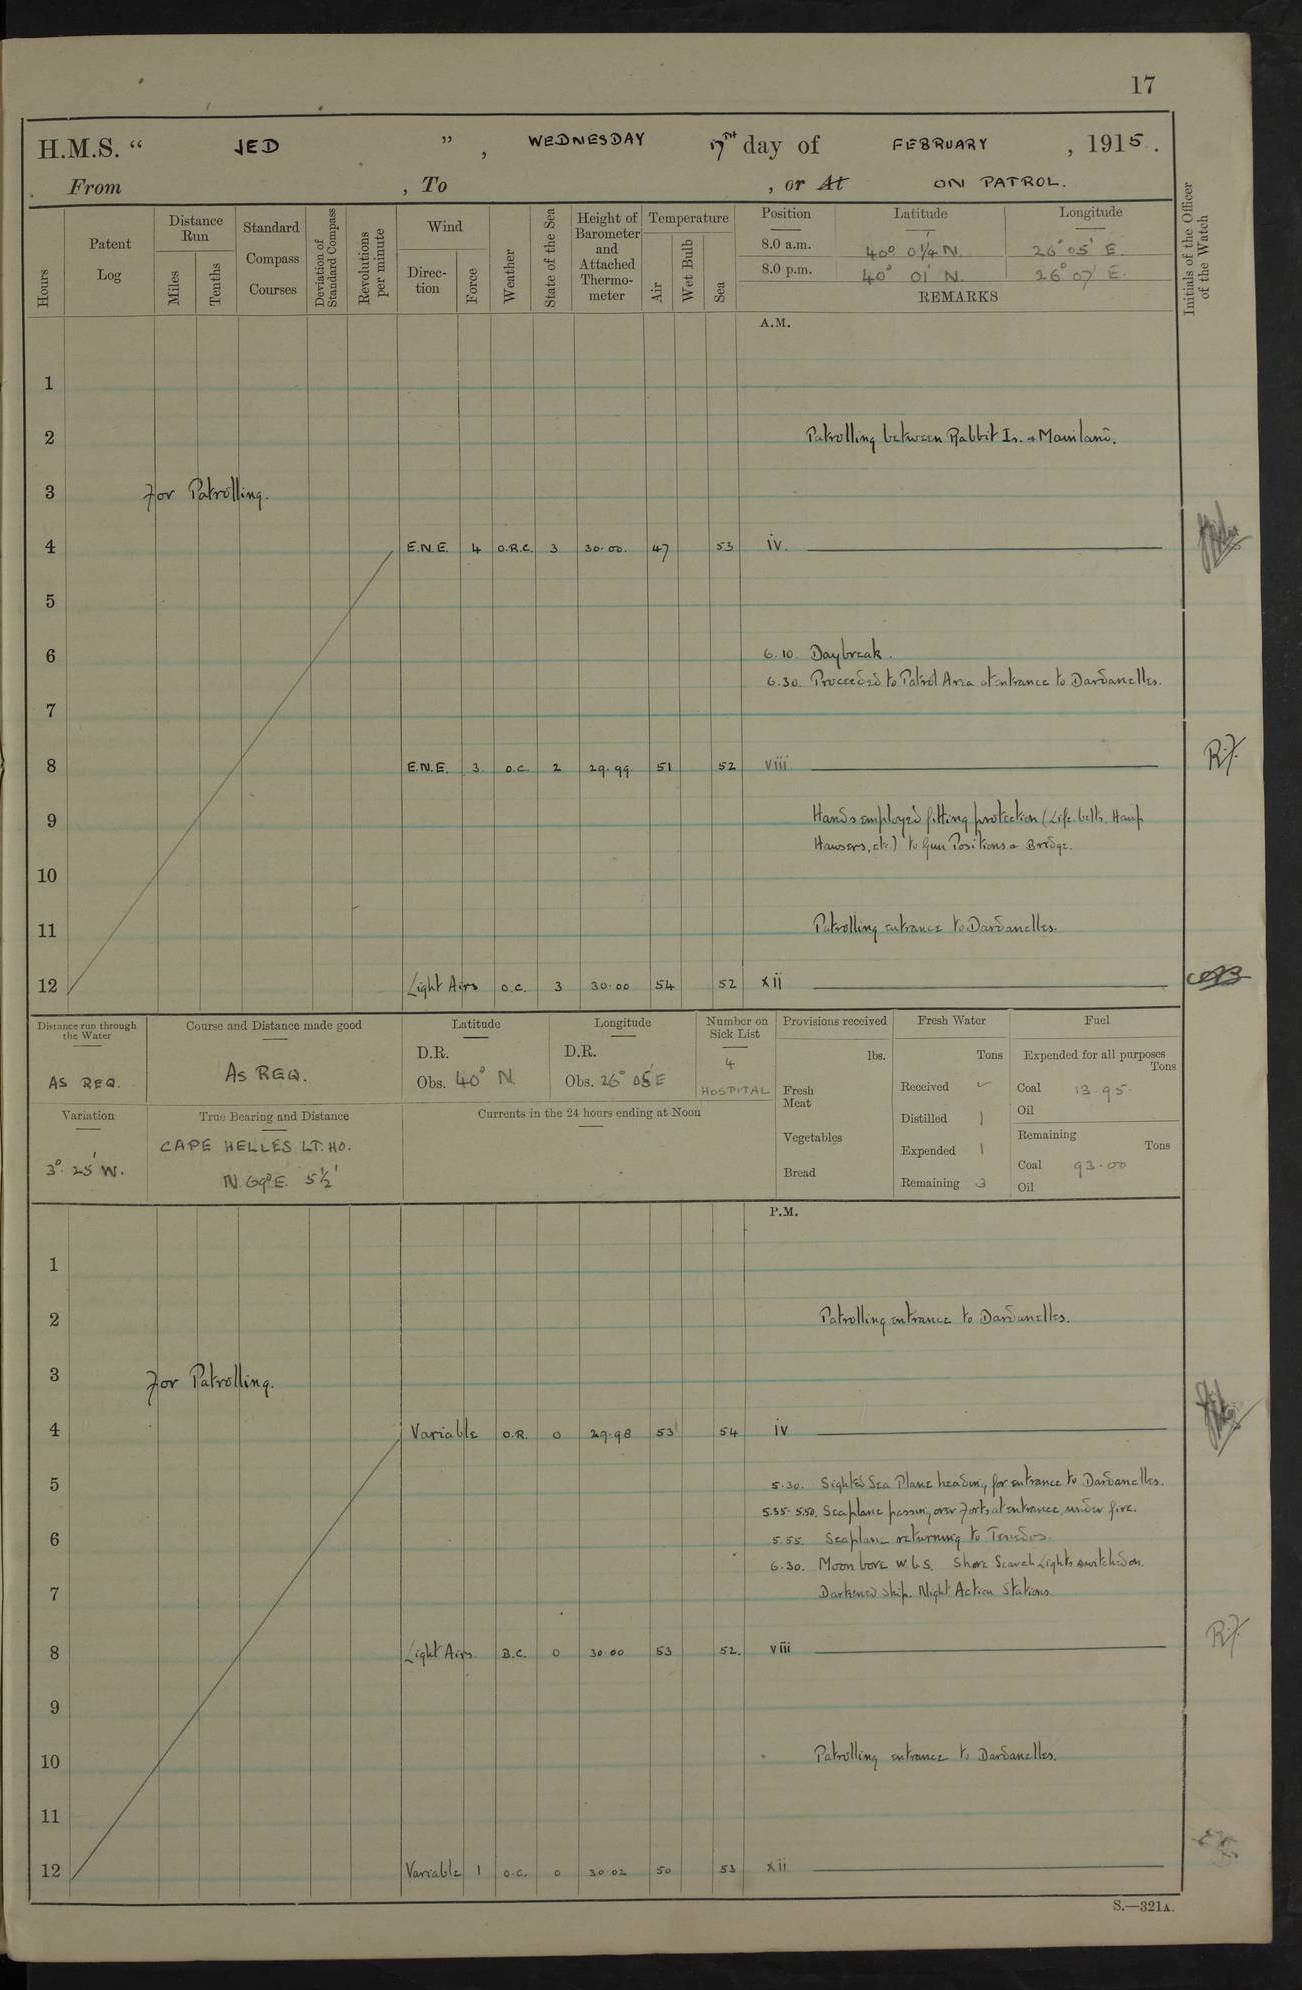 17
H.M.S. “ JED ” , WEDNESDAY 17TH day of FEBRUARY , 1915 .
From , To , or At ON PATROL.
Hours
Patent Log
Distance Run
Miles
Tenths
Standard Compass Courses
Deviation of Standard Compass
Revolutions per minute
Wind
Direction
Force
Weather
State of the Sea
Height of Barometer and Attached Thermometer
Temperature
Air
Wet Bulb
Sea
Position Latitude Longitude
8.0 a.m. 40° 0¼' N. 26° 05' E.
8.0 p.m. 40° 01' N. 26° 07' E.
REMARKS
Initials of the Officer of the Watch
A.M.
1
2 Patrolling between Rabbit Is. & Mainland.
3 For Patrolling.
4 E.N.E. 4 O.R.C. 3 30.00. 47 53 iv.
5
6 6.10. Daybreak.
6.30. Proceeded to Patrol Area at entrance to Dardanelles.
7
8 E.N.E. 3 O.C. 2 29.99. 51 52 viii. R.F.
9 Hands employed fitting protection (Life belts, Hemp
Hawsers, etc) to Gun Positions & Bridge.
10
11 Patrolling entrance to Dardanelles.
12 Light Airs O.C. 3 30.00 54 52 xii
Distance run through the Water
AS REQ.
Course and Distance made good
AS REQ.
Latitude
D.R.
Obs. 40° N
Longitude
D.R.
Obs. 26° 05' E
Number on Sick List
4
HOSPITAL
Provisions received
lbs.
Fresh Meat
Vegetables
Bread
Fresh Water
Tons
Received
Distilled 1
Expended 1
Remaining 3
Fuel
Expended for all purposes
Tons
Coal 13.95.
Oil
Remaining
Tons
Coal 93.00
Oil
Variation
3° 25' W.
True Bearing and Distance
CAPE HELLES LT. HO.
N. 69° E. 5½'
Currents in the 24 hours ending at Noon
P.M.
1
2 Patrolling entrance to Dardanelles.
3 For Patrolling.
4 Variable O.R. 0 29.98 53 54 iv
5 5.30. Sighted Sea Plane heading for entrance to Dardanelles.
5.35-5.50. Seaplane passing over Forts at entrance, under fire.
6 5.55. Seaplane returning to Tenedos.
6.30. Moon bore W.b.S. Shore Search Lights switched on.
7 Darkened ship. Night Action Stations.
8 Light Airs. B.C. 0 30.00 53 52. viii R.F.
9
10 Patrolling entrance to Dardanelles.
11
12 Variable 1 O.C. 0 30.02 50 53 xii
S.—321A.